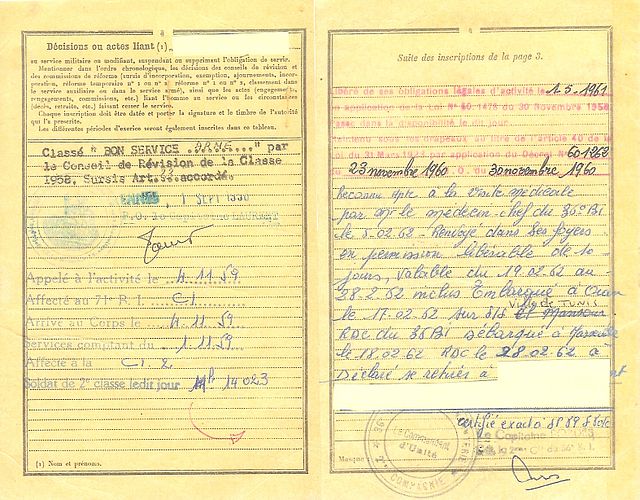 Décisions ou actes liant (1)
au service militaire ou modifiant, suspendant ou supprimant l'obligation de servir.
Mentionner dans l'ordre chronologique, les décisions des conseils de révision et
des commissions de réforme (sursis d'incorporation, exemption, ajournements, incor-
poration, réforme temporaire n° 1 ou n° 2, réforme n° 1 ou n° 2, classement dans
le service auxiliaire ou dans le service armé), ainsi que les actes (engagements,
rengagements, commissions, etc.) liant l'homme au service ou les circonstances
(décès, retraite, etc.) faisant cesser le service.
Chaque inscription doit être datée et porter la signature et le timbre de l'autorité
qui l'a prescrite.
Les différentes périodes d'exercice seront également inscrites dans ce tableau.
Classé " BON SERVICE ARMÉ " par
le Conseil de Révision de la Classe
1958. Sursis Art. accordé.
1 SEPT 1958
Appelé à l'activité le 4.11.59
Affecté au 71e R. I. CI
Arrivé au Corps le 4.11.59
Services comptant du 1.11.59
Affecté à la CI.2
Soldat de 2e classe ledit jour Mle 14023
(1) Nom et prénoms.
Suite des inscriptions de la page 3.
Libéré de ses obligations légales d'activité le 1.5.1961
en application de la Loi N° 50.1478 du 30 Novembre 1950
passé dans la disponibilité le dit jour.
Maintenu sous les drapeaux au titre de l'article 40 de la
Loi du 31 Mars application du Décret N° 60-1262
23 novembre 1960 J. O. du 30 novembre 1960
Reconnu apte à la visite médicale
par le médecin-chef du 36e BI
le 5.02.62 - Renvoyé dans ses foyers
en permission libérable de 10
jours, valable du 19.02.62 au
28.2.62 inclus Embarqué à Oran
Ville de TUNIS
le 17.02.62 sur S/S El Mansour
RDC du 36 BI Débarqué à Marseille
le 18.02.62 RDC le 28.02.62 à
Déclare se retirer à
certifié exact à SP 89 
Le Capitaine
Le Commandant
d'Unité
COMPAGNIE